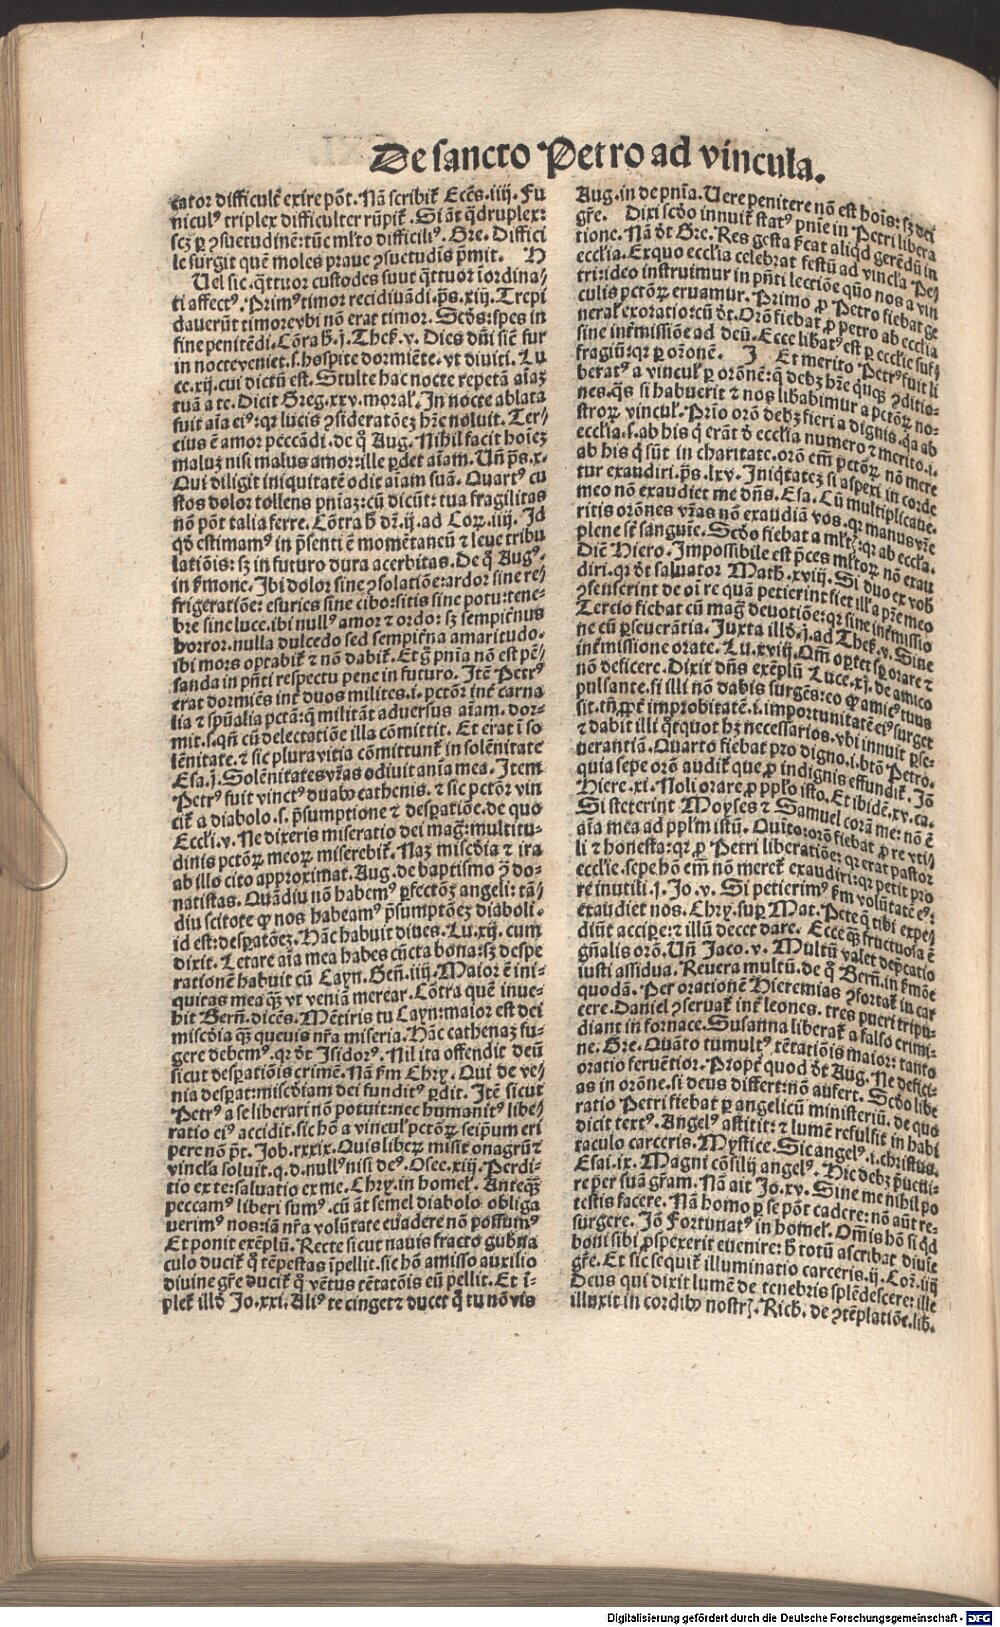 De sancto Petro ad vincula.
cator difficult̃ exire põt. Nã scribit̃ Ecc̃s. iiij. Fu
niculꝰ triplex difficulter rũpit̃. Si ãt q̃druplex:
scꝫ ꝑ ꝯsuetudinẽ: tũc ml̃to difficiliꝰ. Gre. Diffici
le surgit quẽ moles praue ꝯsuetudĩs p̃mit. H
Uel sic. q̃ttuor custodes suut q̃ttuor ĩordina⸗
ti affectꝰ. Primꝰ timor recidiuãdi. p̃s. xiij. Trepi
dauerũt timore vbi nõ erat timor. Scd̃s: spes in
fine penitẽdi. Cõra h̃. j. Thes̃. v. Dies dñi siẽt fur
in nocte veniet. s. hospite dormiẽte. vt diuiti. Lu
ce. xij. cui dictũ est. Stulte hac nocte repetã aĩaꝫ
tuã a te. Dicit Greg. xxv. moral̃. In nocte ablata
fuit aĩa eiꝰ: qꝛ lucis ꝯsideratõeꝫ hr̃e noluit. Ter⸗
cius ẽ amor peccãdi. de q̃ Aug. Nihil facit hoĩeꝫ
maluꝫ nisi malus amor: ille ꝑdet aĩam. Uñ p̃s. x.
Qui diligit iniquitatẽ odit aĩam suã. Quartꝰ cu
stos dolor tollens pñiaꝫ: cũ dicũt: tua fragilitas
nõ põt talia ferre. Cõtra h̃ dr̃. ij. ad Coꝝ. iiij. Id
qd̃ estimamꝰ in p̃senti ẽ momẽtaneũ ⁊ leue tribu
latiõis: sꝫ in futuro dura acerbitas. De q̃ Augꝰ.
in s̃mone. Ibi dolor sine ꝯsolatiõe: ardor sine re⸗
frigeratiõe: esuries sine cibo: sitis sine potu: tene⸗
bre sine luce. ibi nullꝰ amor ⁊ ordo: sꝫ sempit̃nus
horror. nulla dulcedo sed sempit̃na amaritudo.
ibi mors optabit̃ ⁊ nõ dabit̃. Et g̃ pñia nõ est pẽ⸗
sanda in pñti respectu pene in futuro. Itẽ Petrꝰ
erat dormiẽs int̃ duos milites. i. pctõr int̃ carna
lia ⁊ spũalia pctã: q̃ militãt aduersus aĩam. dor⸗
mit. s. qñ cũ delectatiõe illa cõmittit. Et erat i so
lẽnitate. ⁊ sic plura vitia cõmittunt̃ in solẽnitate
Esa. j. Solẽnitates vr̃as odiuit anĩa mea. Item
Petrꝰ fuit vinctꝰ duabꝰ cathenis. ⁊ sic pctõr vin
cit̃ a diabolo. s. p̃sumptione ⁊ desꝑatiõe. de quo
Eccl̃i. v. Ne dixeris miseratio dei mag̃: multitu⸗
dinis pctõꝝ meoꝝ miserebit̃. Naꝫ misc̃dia ⁊ ira
ab illo cito approximat. Aug. de baptismo ꝯ̃ do⸗
natistas. Quãdiu nõ habemꝰ ꝑfectõꝫ angeli: tã⸗
diu scitote ꝙ nos habeamꝰ p̃sumptõeꝫ diaboli.
id est: desꝑatõeꝫ. Hãc habuit diues. Lu. xij. cum
dixit. Letare aĩa mea habes cũcta bona: sꝫ despe
rationẽ habuit cũ Cayn. Geñ. iiij. Maior ẽ ini⸗
quitas mea q̃ꝫ vt veniã merear. Cõtra quẽ inue⸗
hit Berñ. dicẽs. Mẽtiris tu Cayn: maior est dei
misc̃dia q̃ꝫ queuis nr̃a miseria. Hãc cathenaꝫ fu⸗
gere debemꝰ. qꝛ dt̃ Isidorꝰ. Nil ita offendit deũ
sicut desꝑatiõis crimẽ. Nã s̃m Chry. Qui de ve⸗
nia desꝑat: misc̃diam dei funditꝰ ꝑdit. Itẽ sicut
Petrꝰ a se liberari nõ potuit: nec humanitꝰ libe⸗
ratio eiꝰ accidit. sic hõ a vincul̃ pctõꝝ seip̃um eri
pere nõ p̃t. Job. xxxix. Quis libeꝝ misit onagrũ ⁊
vincl̃a soluit. q. d. nullꝰ nisi deꝰ. Osee. xiij. Perdi⸗
tio ex te: saluatio ex me. Chry. in homel̃. Anteq̃ꝫ
peccemꝰ liberi sumꝰ. cũ ãt semel diabolo obliga
uerimꝰ nos: iã nr̃a volũtate euadere nõ possumꝰ
Et ponit exẽplũ. Recte sicut nauis fracto gub̃na
culo ducit̃ q̃ tẽpestas ĩpellit. sic hõ amisso auxilio
diuine gr̃e ducit̃ q̃ vẽtus tẽtatõis eũ pellit. Et ĩ⸗
plet̃ illd̃ Jo. xxi. Aliꝰ te cinget ⁊ ducet q̃ tu nõ vis
Aug. in de pñia. Uere penitere nõ est hoĩs: sꝫ dei
gr̃e. Dixi scd̃o innuit̃ statꝰ pnĩe in Petri libera
tione. Nã dt̃ Gre. Res gesta s̃cat aliqd̃ gerẽdũ in
ecclĩa. Ex quo ecclĩa celebrat festũ ad vincl̃a Pe⸗
tri: ideo instruimur in pñti lectiõe quõ nos a vin
culis pctõꝝ eruamur. Primo ꝓ Petro fiebat ge
neral̃ exoratio: cũ dt̃. Orõ fiebat ꝓ petro ab ecclia
sine int̃missiõe ad deũ. Ecce libatꝰ est ꝑ ecclie suf⸗
fragiũ: qꝛ ꝑ orõnẽ. J Et merito Petrꝰ fuit li
beratꝰ a vincul̃ ꝑ orõnẽ: q̃ debꝫ hr̃e quĩqꝫ ꝯditio⸗
nes. q̃s si habuerit ⁊ nos libabimur a pctõꝝ no⸗
stroꝝ vincul̃. Prĩo orõ debꝫ fieri a dignis. q̃a ab
ecclĩa. s. ab his q̃ erãt d̃ ecclĩa numero ⁊ merito. i.
ab his q̃ sũt in charitate. orõ em̃ pctõꝝ nõ mere
tur exaudiri. p̃s. lxv. Iniq̃tateꝫ si aspexi in corde
meo nõ exaudiet me dñs. Esa. Cũ multiplicaue⸗
ritis orõnes vr̃as nõ exaudiã vos. qꝛ manus vr̃e
plene st̃ sanguĩe. Scd̃o fiebat a ml̃t: qꝛ ab eccl̃a.
Diẽ Hiero. Impossibile est p̃ces ml̃toꝝ nõ exau
diri. qꝛ dt̃ saluator Math. xviij. Si duo ex vob̃
ꝯsenserint de oĩ re quã petierint fiet illa pr̃e meo
Tercio fiebat cũ mag̃ deuotiõe: qꝛ sine int̃missio
ne cũ ꝑseuerãtia. Juxta illd̃. j. ad Thes̃. v. Sine
int̃missione orate. Lu. xviij. Om̃ oꝑtet sp̃ orate ⁊
nõ deficere. Dixit dñs exẽplũ Luce. xj. de amico
pulsante. si illi nõ dabis surgẽs: eo ꝙ amicꝰ tuus
sit. tñ ꝓꝑt̃ improbitatẽ. i. importunitatẽ eiꝰ surget
⁊ dabit illi q̃tquot hꝫ necessarios. vbi innuit ꝑse⸗
uerantiã. Quarto fiebat pro digno. i. btõ Petro.
quia sepe orõ audit̃ que ꝓ indignis effundit̃. Jõ
Hiere. xi. Noli orare ꝓ ppl̃o isto. Et ibidẽ. xv. ca.
Si steterint Moyses ⁊ Samuel corã me: nõ ẽ
aĩa mea ad ppl̃m istũ. Quĩto: orõ fiebat ꝓ re vti⸗
li ⁊ honesta: qꝛ ꝓ Petri liberatiõe: qꝛ erat pastor
ecclie. sepe hõ em̃ nõ meret̃ exaudiri: qꝛ petit pro
re inutili. j. Jo. v. Si petierimꝰ s̃m volũtatẽ eꝰ:
exaudiet nos. Chry. suꝑ Mat. Pete q̃ tibi expe⸗
diũt accipe: ⁊ illũ decet dare. Ecce q̃ꝫ fructuosa ẽ
gñalis orõ. Uñ Jaco. v. Multũ valet dep̃catio
iusti assidua. Reuera multũ. de q̃ Berñ. in s̃mõe
quodã. Per orationẽ Hieremias ꝯfortat̃ in car
cere. Daniel ꝯseruat̃ int̃ leones. tres pueri tripu⸗
diant in fornace. Susanna liberat̃ a falso crimi⸗
ne. Gre. Quãto tumultꝰ tẽtatiõis maior: tanto
oratio feruẽtior. Propt̃ quod dt̃ Aug. Ne defici⸗
as in orõne. si deus differt: nõ aufert. Scd̃o libe
ratio Petri fiebat ꝑ angelicũ ministeriũ. de quo
dicit textꝰ. Angelꝰ astitit: ⁊ lumẽ refulsit in habi
taculo carceris. Mystice. Sic angelꝰ. i. christus.
Esai. ix. Magni cõsilij angelꝰ. Hic debꝫ p̃ueni⸗
re ꝑ suã gr̃am. Nã ait Jo. xv. Sine me nihil po
testis facere. Nã homo ꝑ se põt cadere: nõ aũt re⸗
surgere. Jõ Fortunatꝰ in homel̃. Om̃is hõ si qd̃
boni sibi ꝓspexerit euenire: h̃ totũ ascribat diuĩe
gr̃e. Et sic sequit̃ illuminatio carceris. ij. Cor̃. iiij
Deus qui dixit lumẽ de tenebris splẽdescere: ille
illuxit in cordibꝰ nostrꝭ. Rich. de ꝯtẽplatiõe. lib̃.
Digitalisierung gefördert durch die Deutsche Forschungsgemeinschaft - DFG